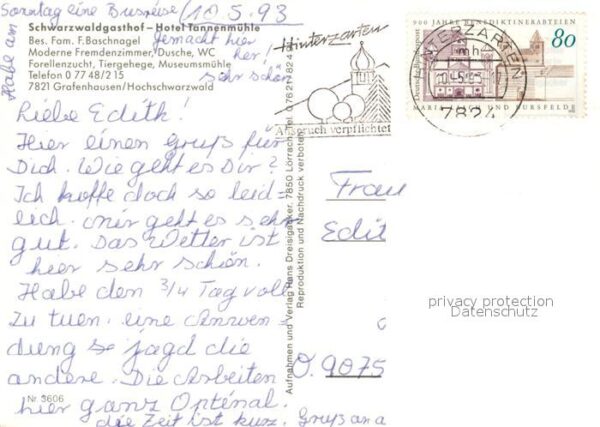 Sonntag eine Busreise (10.5.93
Habe am
Schwarzwaldgasthof – Hotel Tannenmühle
Bes. Fam. F. Baschnagel
gemacht hier
Moderne Fremdenzimmer, Dusche, WC
her,
Forellenzucht, Tiergehege, Museumsmühle
sehr schön
Telefon 0 77 48/2 15
7821 Grafenhausen/Hochschwarzwald
Liebe Edith!
Hier einen Gruß für
Dich. Wie geht es Dir?
Ich hoffe doch so leid-
lich. mir geht es sehr
gut. Das Wetter ist
hier sehr schön.
Habe den 3/4 Tag voll
zu tuen. eine Anwen-
dung so jagd die
andere. Die Arbeiten
hier ganz Opténal.
die Zeit ist kurz. Gruß an a
Nr. 3606
Aufnahmen und Verlag Hans Dreisigacker, 7850 Lörrach, Tel. 07621
Reproduktion und Nachdruck verboten
Hinterzarten
Anspruch verpflichtet
HINTERZARTEN
mh
7824
900 JAHRE BENEDIKTINERABTEIEN
80
Deutsche Bundespost
UND BURSFELDE
Frau
Edit
O. 9075
privacy protection
Datenschutz